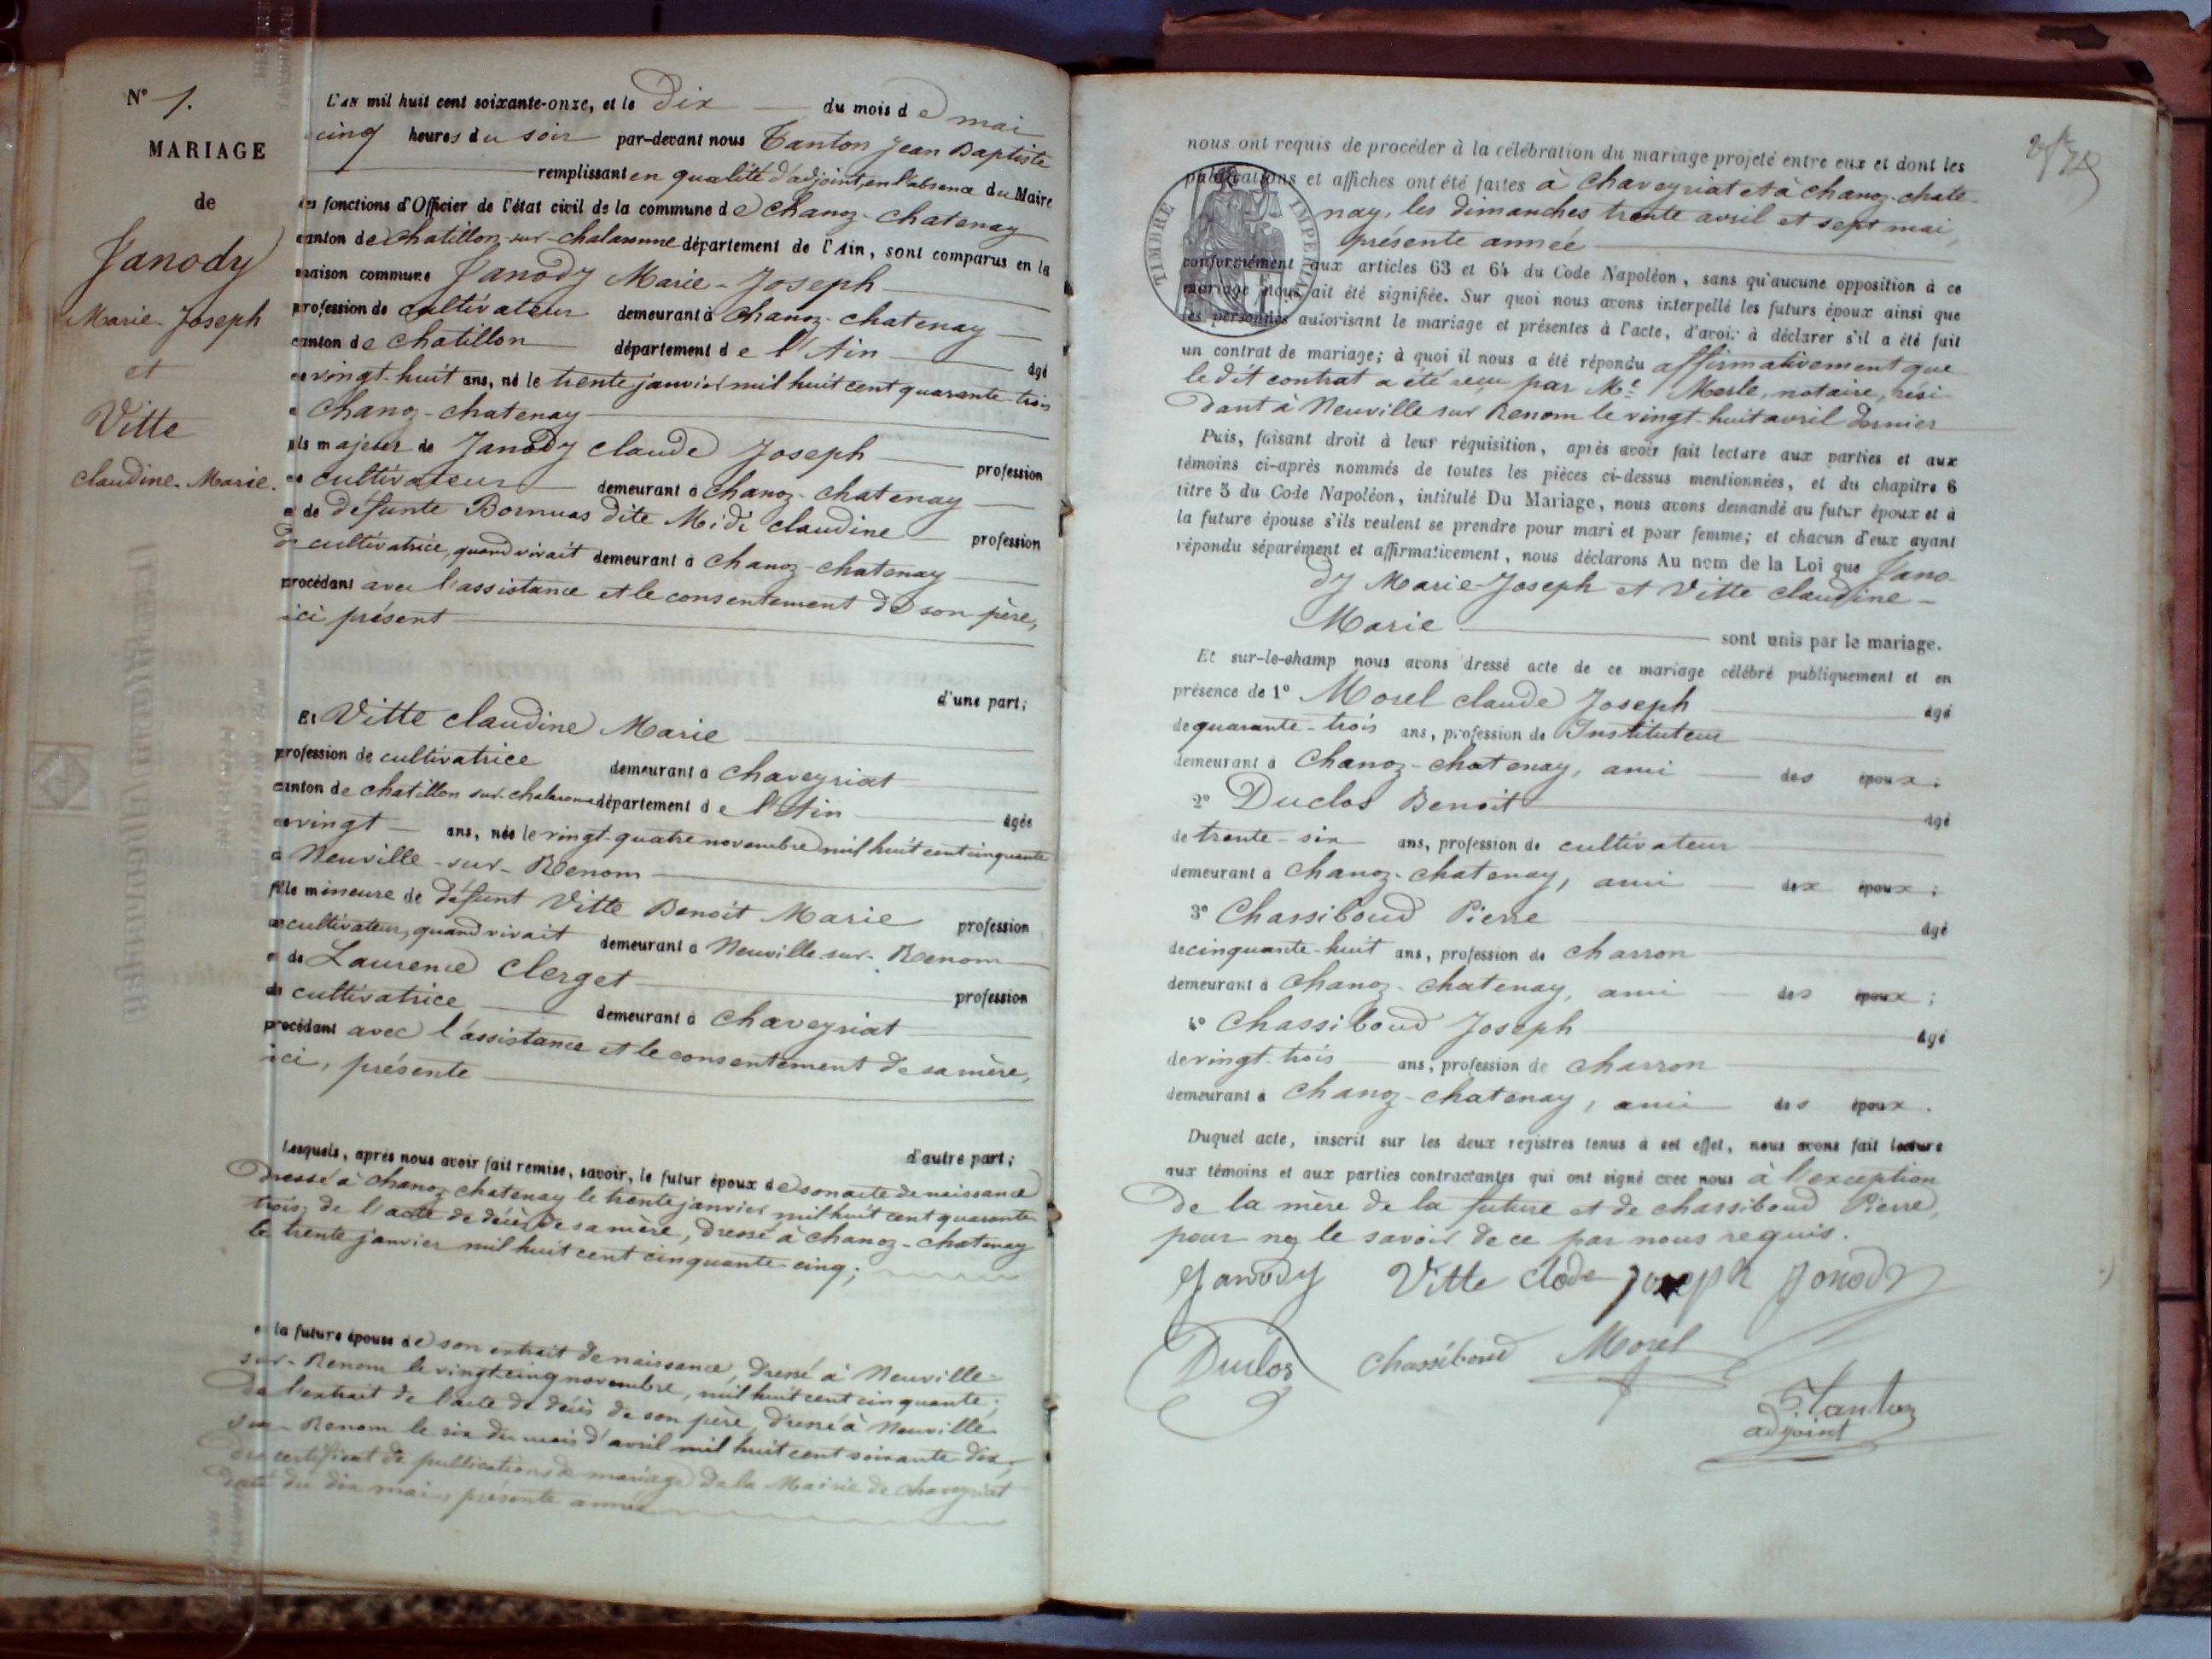 N° 1.
MARIAGE
de
Janody
Marie-Joseph
et
Vitte
Claudine-Marie.
L'AN mil huit cent soixante-onze, et le Dix du mois de mai
cinq heures du soir par-devant nous Tanton Jean Baptiste
remplissant en qualité d'adjoint, en l'absence du Maire
les fonctions d'Officier de l'état civil de la commune de Chanoz-Chatenay
canton de Chatillon-sur-Chalaronne département de l'Ain, sont comparus en la
maison commune Janody Marie-Joseph
profession de cultivateur demeurant à Chanoz-Chatenay
canton de Chatillon département de l'Ain âgé
de vingt-huit ans, né le trente janvier mil huit cent quarante-trois
à Chanoz-Chatenay
fils majeur de Janody Claude Joseph profession
de cultivateur demeurant à Chanoz-Chatenay
et de défunte Bornuas dite Midi Claudine profession
de cultivatrice, quand vivait demeurant à Chanoz-Chatenay
procédant avec l'assistance et le consentement de son père,
ici présent
d'une part;
Et Vitte Claudine Marie
profession de cultivatrice demeurant à Chaveyriat
canton de Chatillon sur-Chalaronne département de l'Ain âgée
de vingt ans, née le vingt-quatre novembre mil huit cent cinquante
à Neuville-sur-Renom
fille mineure de défunt Vitte Benoit Marie profession
de cultivateur, quand vivait demeurant à Neuville-sur-Renom
et de Laurence Clerget profession
de cultivatrice demeurant à Chaveyriat
procédant avec l'assistance et le consentement de sa mère,
ici, présente
d'autre part;
Lesquels, après nous avoir fait remise, savoir, le futur époux de son acte de naissance
dressé à Chanoz Chatenay le trente janvier mil huit cent quarante
trois, de l'acte de décès de sa mère, dressé à Chanoz-Chatenay
le trente janvier mil huit cent cinquante-cinq;
et la future épouse de son extrait de naissance, dressé à Neuville-
sur-Renom le vingt cinq novembre, mil huit cent cinquante;
de l'extrait de l'acte de décès de son père, dressé à Neuville
sur-Renom le six du mois d'avril mil huit cent soixante dix,
du certificat de publications de mariage de la Mairie de Chaveyriat
daté du dix mai, présente année
nous ont requis de procéder à la célébration du mariage projeté entre eux et dont les
publications et affiches ont été faites à Chaveyriat et à Chanoz-Chate-
nay, les dimanches trente avril et sept mai,
présente année
TIMBRE IMPERIAL
conformément aux articles 63 et 64 du Code Napoléon, sans qu'aucune opposition à ce
mariage nous ait été signifiée. Sur quoi nous avons interpellé les futurs époux ainsi que
les personnes autorisant le mariage et présentes à l'acte, d'avoir à déclarer s'il a été fait
un contrat de mariage; à quoi il nous a été répondu affirmativement que
le dit contrat a été reçu par Me Merle, notaire, rési-
dant à Neuville sur Renom le vingt-huit avril dernier
Puis, faisant droit à leur réquisition, après avoir fait lecture aux parties et aux
témoins ci-après nommés de toutes les pièces ci-dessus mentionnées, et du chapitre 6
titre 5 du Code Napoléon, intitulé Du Mariage, nous avons demandé au futur époux et à
la future épouse s'ils veulent se prendre pour mari et pour femme; et chacun d'eux ayant
répondu séparément et affirmativement, nous déclarons Au nom de la Loi que Jano-
dy Marie-Joseph et Vitte Claudine-
Marie sont unis par le mariage.
Et sur-le-champ nous avons dressé acte de ce mariage célébré publiquement et en
présence de 1° Morel Claude Joseph âgé
de quarante-trois ans, profession de Instituteur
demeurant à Chanoz-Chatenay, ami des époux;
2° Duclos Benoit âgé
de trente-six ans, profession de cultivateur
demeurant à Chanoz-Chatenay, ami des époux;
3° Chassiboud Pierre âgé
de cinquante-huit ans, profession de charron
demeurant à Chanoz-Chatenay, ami des époux;
4° Chassiboud Joseph âgé
de vingt-trois ans, profession de charron
demeurant à Chanoz-Chatenay, ami des époux.
Duquel acte, inscrit sur les deux registres tenus à cet effet, nous avons fait lecture
aux témoins et aux parties contractantes qui ont signé avec nous à l'exception
de la mère de la future et de Chassiboud Pierre,
pour ne le savoir de ce par nous requis.
Janody Vitte Clode Joseph Jonody
Duclos Chassiboud Morel
Tanton
adjoint